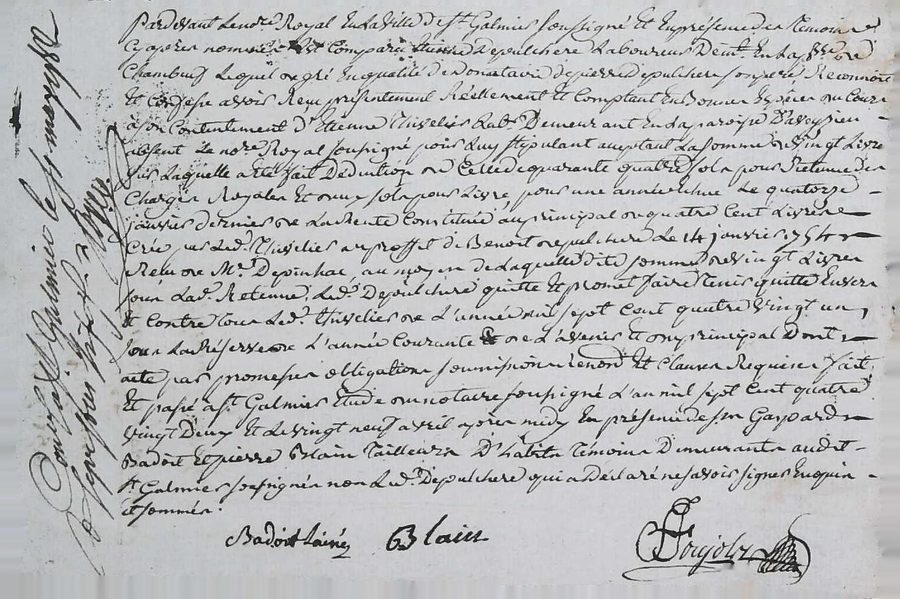 Pardevant Le no.re Royal En La Ville de St. Galmier soussigné Et En presence des Temoins
Cy apres nommés Est Comparu Etienne Depulchere Laboureur Demt. En La
Chambeuf Lequel de gré En qualité de Donataire de pierre Depulchere son pere Reconnoit
Et Confesse avoir Reçu presentement Réellement Et Comptant En Bonnes Especes du Cours
à son Contentement d'Etienne Thivelier Lab.r Demeurant En La paroisse D'aveysieu
absent Le no.re Royal soussigné pour Luy stipulant acceptant La somme de vingt Livres
sur Laquelle a été fait Déduction de Celle de quarante quatre sols pour Retenue des
Charges Royales Et deux sols pour Livre, pour une année Echue Le quatorze
janvier dernier de La Rente Constituée au principal de quatre Cent Livres
Créé par Led. Thivelier au proffit de Benoit depulchere Le 14 janvier 1754
Reçu de Me. Depinhac, au moyen de Laquelle dite somme de vingt Livres
sous Lad. Retenue, Led. Depulchere quitte Et promet faire tenir quitte Envers
Et Contre tous Led. Thivelier de L'année mil sept Cent quatre Vingt un,
sous La Réserve de L'année Courante Et de L'avenir Et du principal Dont
acte par promesses obligations soumissions renond. Et Clauses Requises fait
Et passé a St. Galmier Etude du notaire soussigné L'an mil sept Cent quatre
Vingt Deux Et Le vingt neuf avril apres midy En presence de sr. Gaspard
Badoit Et pierre Blain Tailleurs D'habits Temoins Demeurants audit
St. Galmier soussignés non Led. Depulchere qui a Déclaré ne savoir signer Enquis
et sommé.
Badoit Lainé Blain
Controllé a St. Galmier le